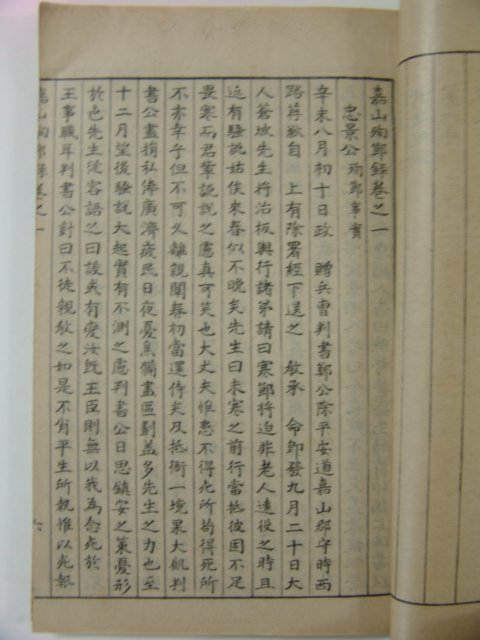 嘉山殉節錄卷之一
忠景公殉節事實
辛未八月初十日政 贈兵曹判書鄭公除平安道嘉山郡守時西
路荐歉自 上有除署經下送之 敎承 命卽發九月二十日大
人蒼坡先生行治板輿行諸弟請曰寒節將迫非老人遠役之時且
近有騷說姑俟來春似不晩矣先生曰未寒之前行當抵彼固不足
畏寒而君輩說說之慮眞可笑也大丈夫惟患不得死所苟得死所
不亦幸乎但不可久離親闈春初當還侍矣及抵衙一境果大飢判
書公盡捐私俸廣濟疲民日夜憂焦備盡區劃盖多先生之力也至
十二月望後騷說大起實有不測之慮判書公日思鎭安之策憂形
於色先生從容語之曰設或有變汝旣王臣則無以我為念死於
王事職耳判書公對曰不徒親敎之如是不肖平生所執惟以死報
嘉山殉節錄卷之一